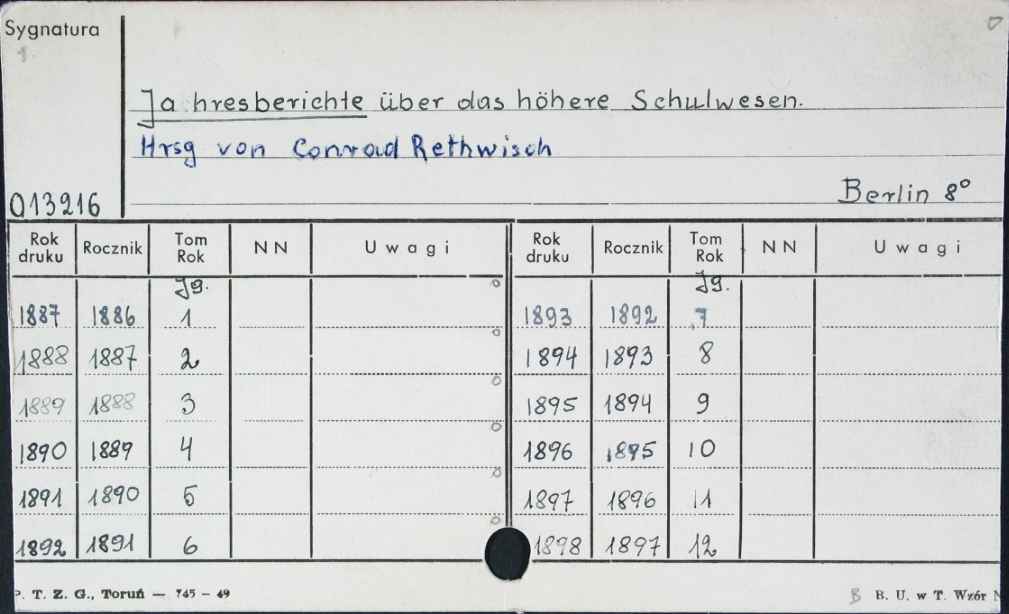 Sygnatura
Jahresberichte über das höhere Schulwesen.
Hrsg von Conrad Rethwisch
013216
Berlin 8°
Rok druku Rocznik Tom Rok NN Uwagi Rok druku Rocznik Tom Rok NN Uwagi
Jg. Jg.
1887 1886 1 1893 1892 7
1888 1887 2 1894 1893 8
1889 1888 3 1895 1894 9
1890 1889 4 1896 1895 10
1891 1890 5 1897 1896 11
1892 1891 6 1898 1897 12
P. T. Z. G., Toruń — 745 – 49 B. U. w T. Wzór